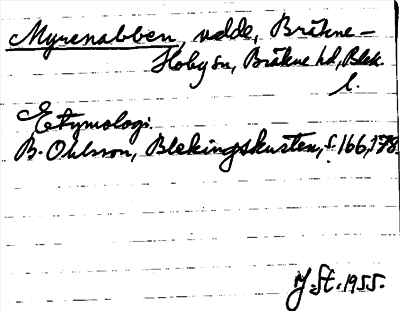 Myrenabben, udde, Bräkne-
Hoby sn, Bräkne hd, Blek.
l.
Etymologi.
B. Ohlsson, Blekingskusten, s. 166, 178.
J. St. 1955.